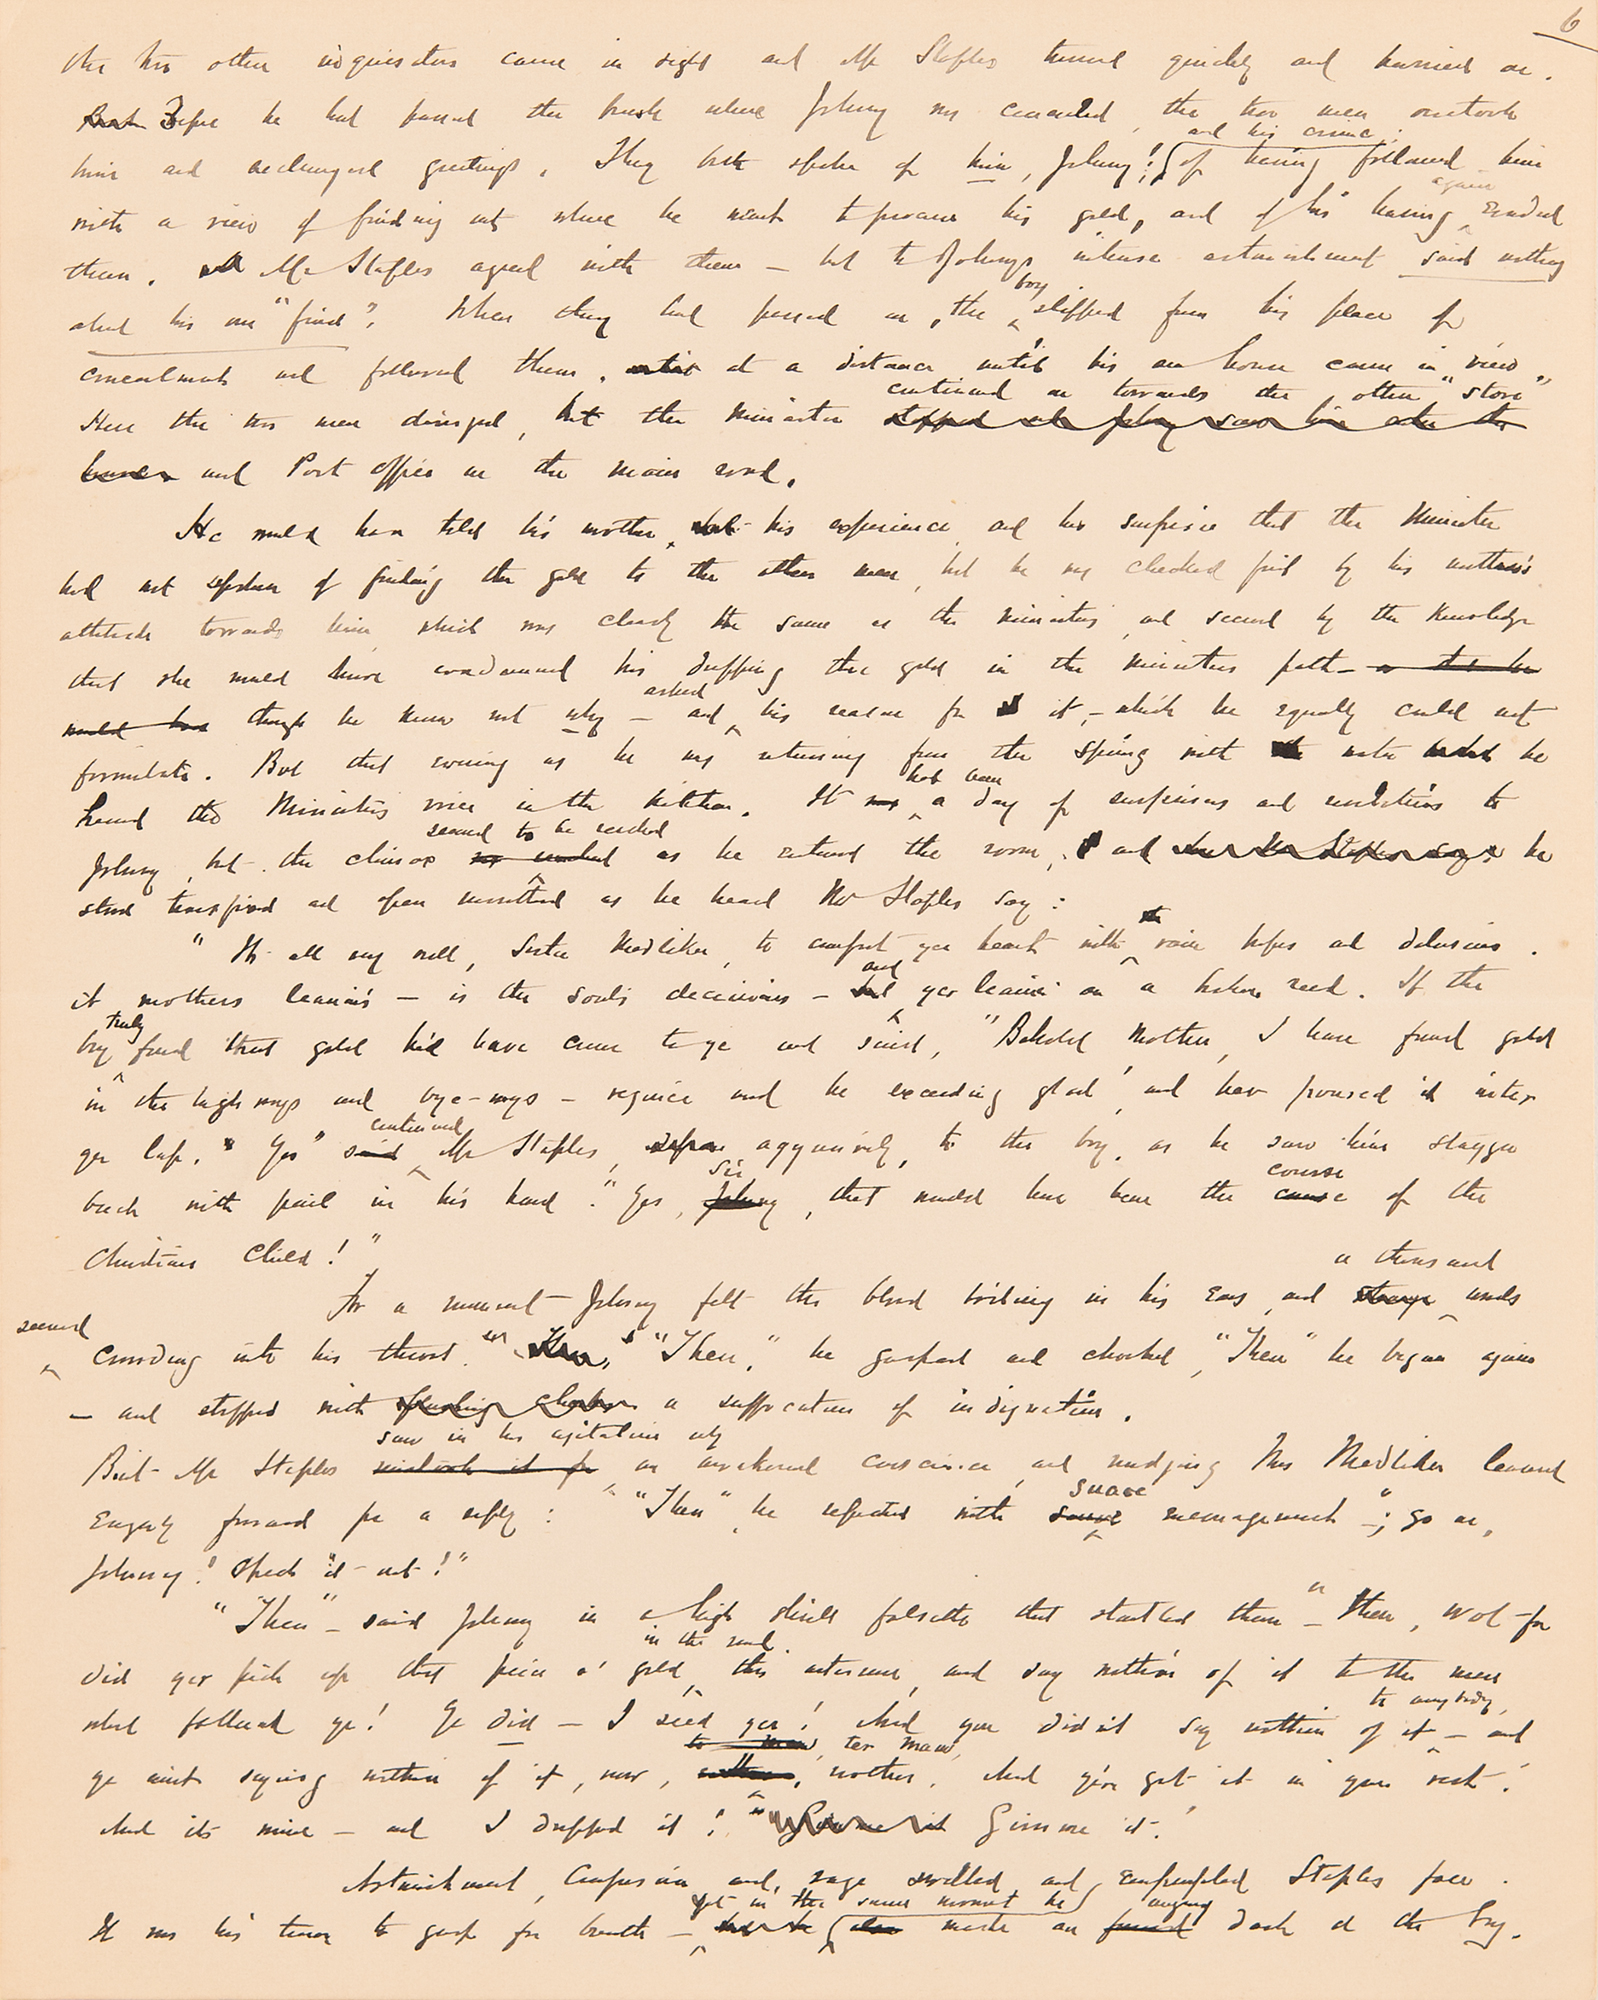 6
the two other inquisitors came in sight and Mr Staples turned quickly and hurried on.
But Before he had passed the brush where Johnny was concealed, the two men overtook
and his crime;
him and exchanged greetings. They both spoke of him, Johnny!; of having followed him
again
with a view of finding out where he went to procure his gold, and of his having evaded
them. Mr Staples agreed with them – but to Johnnys intense astonishment said nothing
boy
about his own "find". When they had passed on, the slipped from his place of
concealment and followed them, at a distance until his own house came in view.
continued on towards the other "store"
Here the two men diverged, but the Minister stopped and Johnny saw him enter the
house and Post office on the main road.
He would have told his mother, his experience and his surprise that the Minister
had not spoken of finding the gold to the other men, but he was checked first by his mother's
attitude towards him which was clearly the same as the ministers, and second by the knowledge
that she would have condemned his dropping the gold in the ministers path –
asked
would have though he knew not why – and his reason for it, – which he equally could not
formulate. But that evening as he was returning from the spring with water he
had been
heard the Ministers voice in the kitchen. It was a day of surprises and revelations to
seemed to be reached
Johnny, but the climax was reached as he entered the room, and he
stood transfixed and open mouthed as he heard Mr Staples say:
"It's all very well, Sister Medliker, to comfort yer heart with vain hopes and delusions.
and
A mothers leanin's – is the soul's deceivins – but yer leanin' on a broken reed. If the
truly
boy found that gold he'd have come to ye and said, "Behold Mother, I have found gold
in the highways and bye-ways – rejoice and be exceeding glad' and hev poured it inter
continued
yer lap. "Yes" said Mr Staples, aggressively, to the boy, as he saw him stagger
Sir course
back with pail in his hand. "Yes, Johnny, that would have been the cause of the
Christian child!"
a thousand
For a moment Johnny felt the blood boiling in his ears, and strange words
seemed
crowding into his throat. "Then," he gasped and choked, "Then" he began again
– and stopped with a suffocation of indignation.
saw in his agitation only
But Mr Staples mistook it for an awakened conscience, and nudging Mrs Medliker leaned
suave
eagerly forward for a reply: "Then", he repeated with encouragement –; "go on,
Johnny! Speak it out!"
"Then" – said Johnny in a high shrill falsetto that startled them – "then, wot for
in the road
did yer pick up that piece o' gold, this arternoon, and say nothin' of it to the men
to anybody,
what follered ye! Ye did – I seed yer! And yer didn't say nothin of it – and
to maw, ter maw,
ye ain't saying nothin of it, now, mother. And you've got it in your vest!
And it's mine – and I dropped it! Gimme it Gimme it!
Astonishment, Confusion and, rage swelled and empurpled Staples face.
yet in the same moment he angry
It was his turn to gasp for breath – made an dash at the boy.